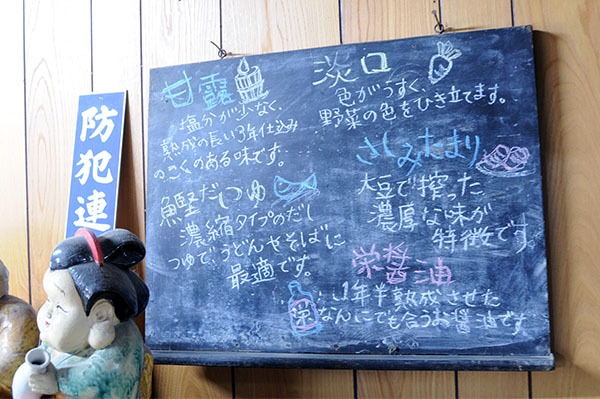 甘露
塩分が少なく、
熟成の長い3年仕込み
のこくのある味です。
鰹だしつゆ
濃縮タイプのだし
つゆで、うどんやそばに
最適です。
淡口
色がうすく、
野菜の色をひき立てます。
さしみたまり
大豆で搾った
濃厚な味が
特徴です
栄醤油
1年半熟成させた
なんにでも合うお醤油です。
栄
防犯連